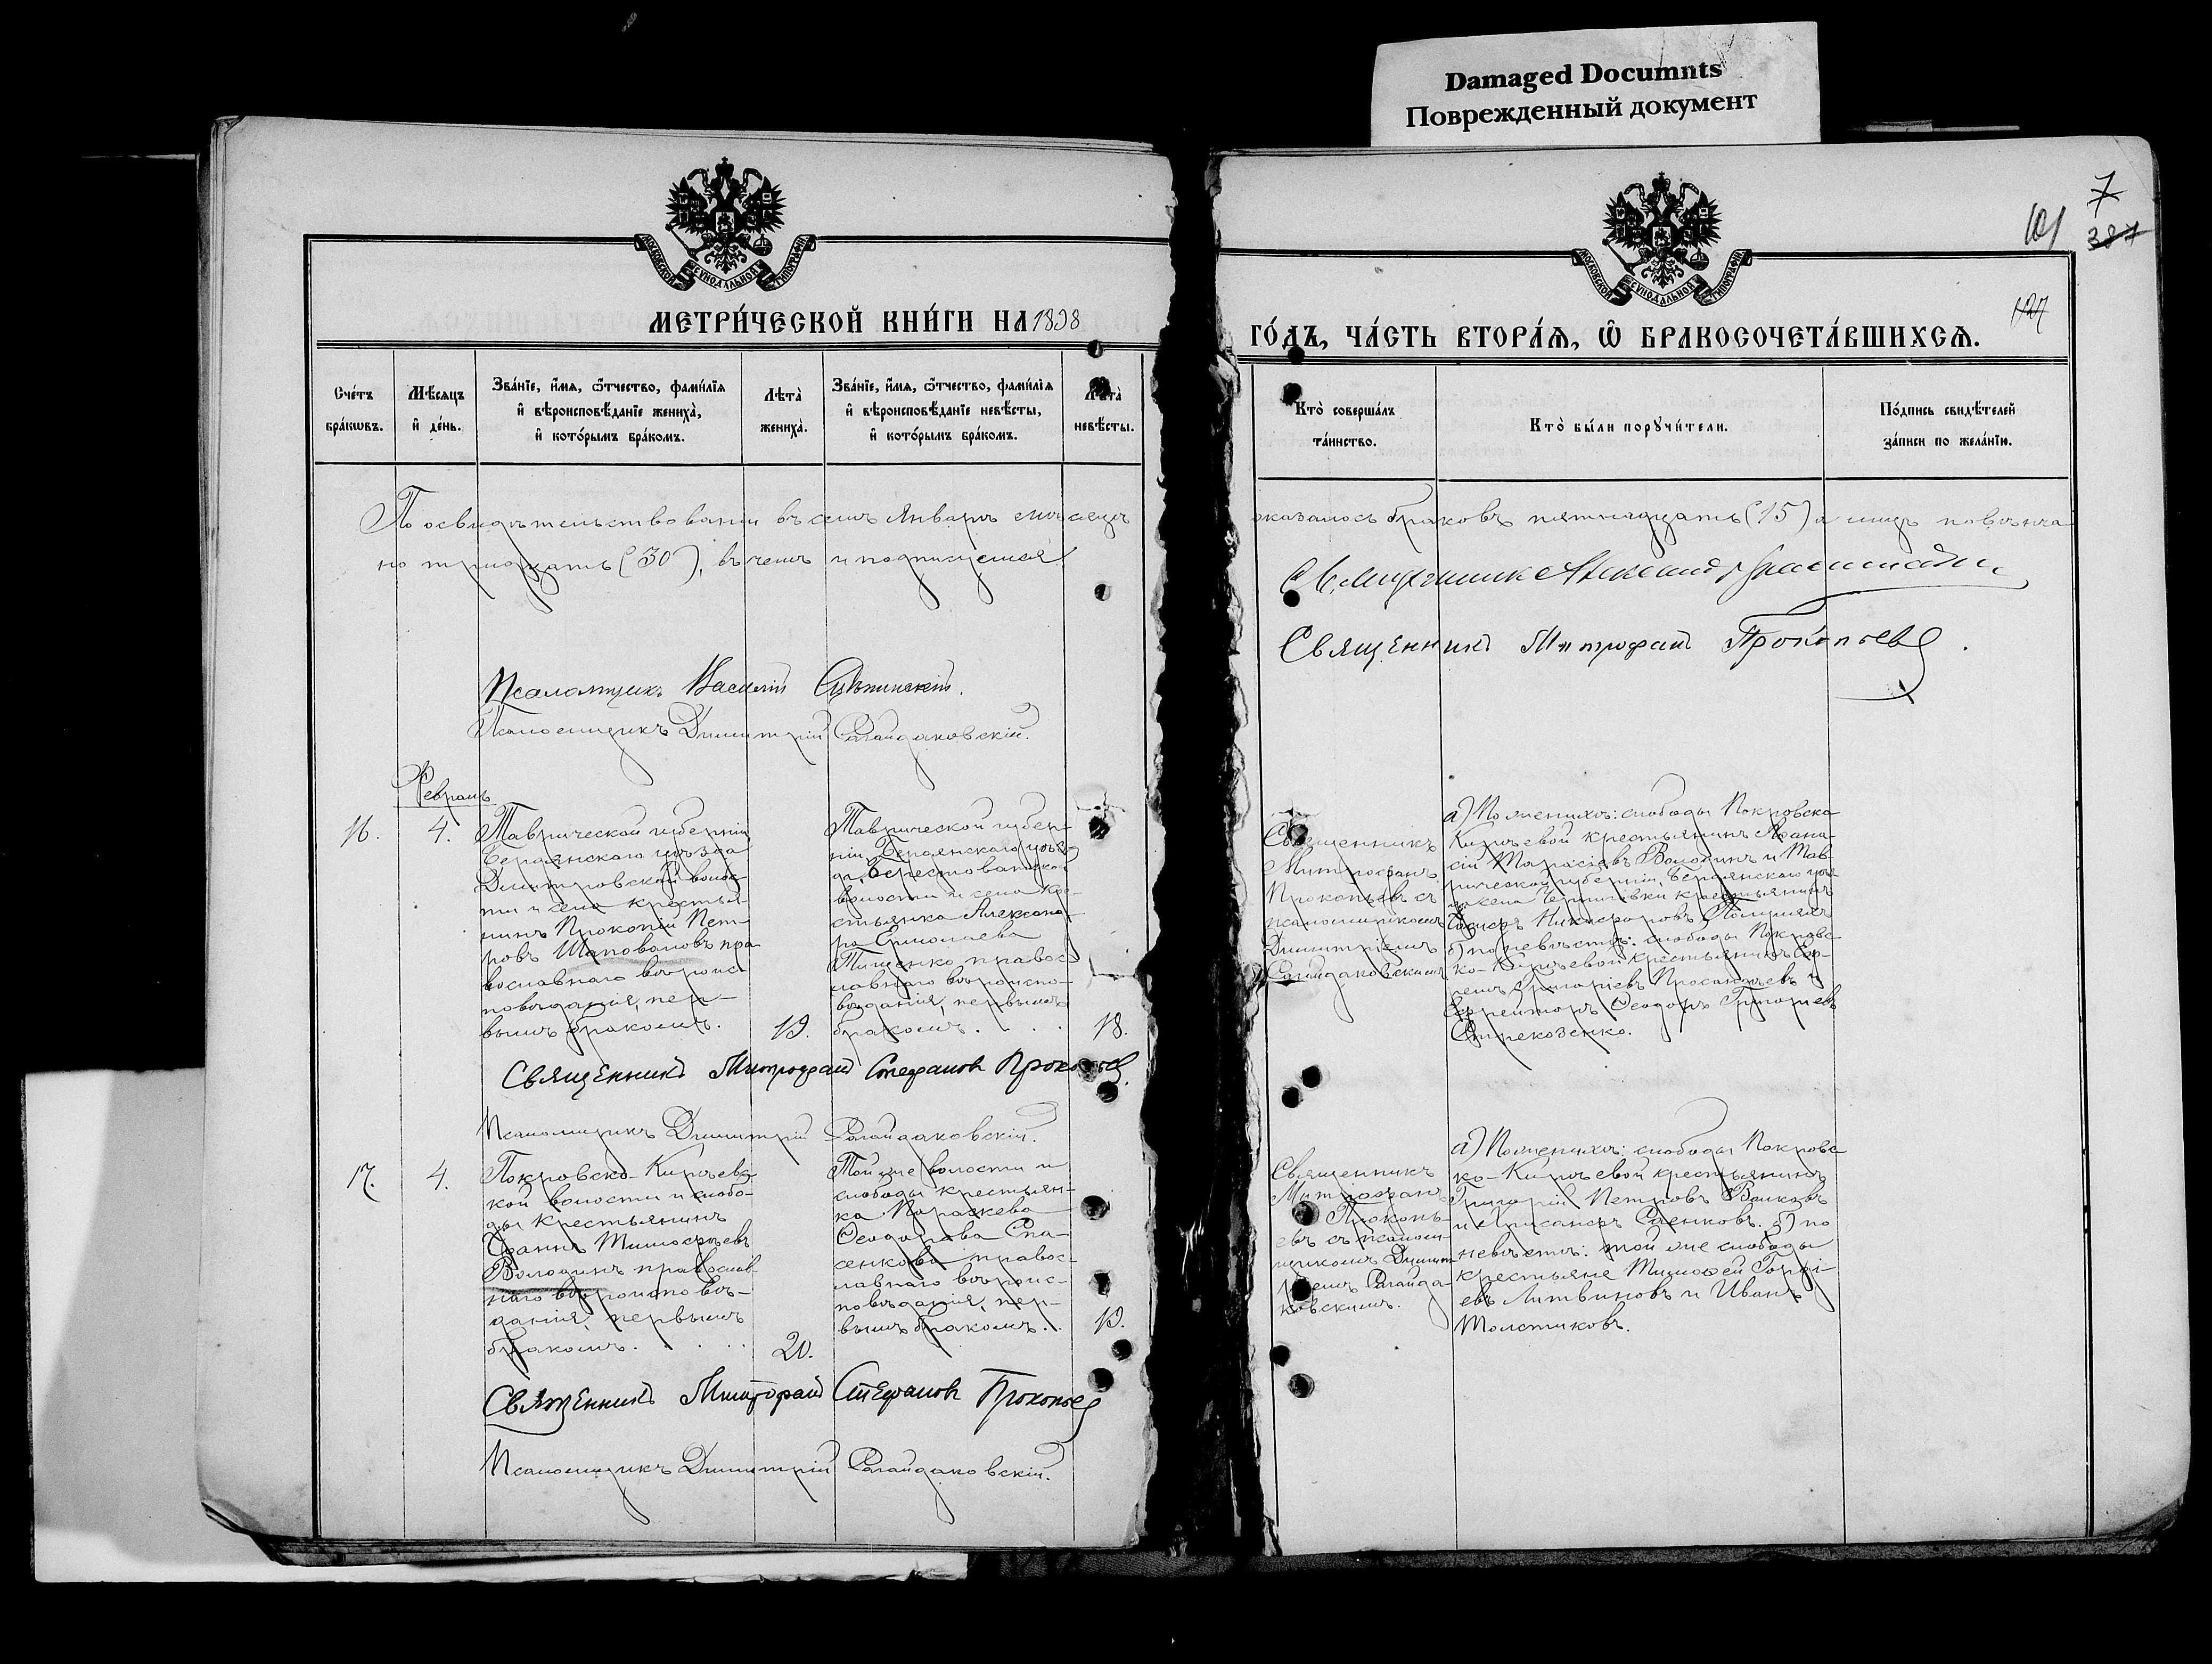 Damaged Documnts
Поврежденный документ
7
101
387
127
МОСКОВСКОЙ СУНОДАЛЬНОЙ ТИПОГРАФІИ
МОСКОВСКОЙ СУНОДАЛЬНОЙ ТИПОГРАФІИ
МЕТРИ́ЧЕСКОЙ КНИ́ГИ НА 1898
ГО́ДЪ, ЧА́СТЬ ВТОРА́Я, Ѡ БРАКОСОЧЕТА́ВШИХСѦ.
Сче́тъ бра́кѡвъ.
Мѣ́сяцъ и҆ де́нь.
Зва́нїе, и҆́мя, ѻ҆́тчество, фами́лїя и҆ вѣроисповѣ́данїе жениха̀, и҆ кото́рымъ бра́комъ.
Лѣта̀ жениха̀.
Зва́нїе, и҆́мя, ѻ҆́тчество, фами́лїя и҆ вѣроисповѣ́данїе невѣ́сты, и҆ кото́рымъ бра́комъ.
Лѣта̀ невѣ́сты.
Кто̀ соверша́лъ та́инство.
Кто̀ бы́ли порꙋчи́тели.
По́дпись свидѣ́телей за́писи по жела́нїю.
По освидѣтельствованіи въ семъ Январѣ мѣсяцѣ
оказалось браковъ пятнадцать (15) а лицъ повѣнча
но тридцать (30), въ чемъ и подписуемся
Священникъ
Священникъ Митрофанъ Прокопьевъ.
Псаломщикъ Василій
Псаломщикъ Димитрій Сагайдаковскій.
Февраль
16.
4.
Таврической губерніи
Бердянскаго уѣзда
Димитровской волос
ти и села крестья
нинъ Прокопій Пет
ровъ Шаповаловъ пра
вославнаго вѣроис
повѣданія, пер-
вымъ бракомъ.
19.
Таврической губер-
ніи, Бердянскаго уѣз
да, Берестоватской
волости и села кре
стьянка Александ
ра
Тищенко, правос
лавнаго вѣроиспо-
вѣданія, первымъ
бракомъ. . . .
18.
Священникъ
Митрофанъ
Прокопьевъ съ
псаломщикомъ
Димитріемъ
Сагайдаковскимъ
а) По женихѣ: слободы Покровско
Кирѣевой крестьянинъ Афана-
сій Тарасіевъ Волошинъ и Тав-
рической губерніи, Бердянскаго уѣз
да села Черниговки крестьянинъ
Никифоровъ
б) по невѣстѣ: слободы Покровс-
ко-Кирѣевой крестьянинъ
Григорьевъ и
Ефрейторъ Ѳеодоръ Григорьевъ
Стрекозенко.
Священникъ Митрофанъ Стефановъ Прокопьевъ.
Псаломщикъ Димитрій Сагайдаковскій.
17.
4.
Покровско-Кирѣевс
кой волости и слобо-
ды крестьянинъ
Іоаннъ Тимофѣевъ
Волошинъ православ-
наго вѣроисповѣ-
данія, первымъ
бракомъ. . . . .
20.
Той же волости и
слободы крестьян-
ка Параскева
Ѳеодорова Спа-
сенкова правос-
лавнаго вѣроис-
повѣданія, пер-
вымъ бракомъ. .
19.
Священникъ
Митрофанъ
Прокопь-
евъ съ псалом-
щикомъ Димит-
ріемъ Сагайда-
ковскимъ.
а) По женихѣ: слободы Покровс
ко-Кирѣевой крестьянинъ
Григорій Петровъ Волковъ
и б) по
невѣстѣ: той же слободы
крестьяне Тимофей
евъ Литвиновъ и Иванъ
Толстиковъ.
Священникъ Митрофанъ Стефановъ Прокопьевъ
Псаломщикъ Димитрій Сагайдаковскій.